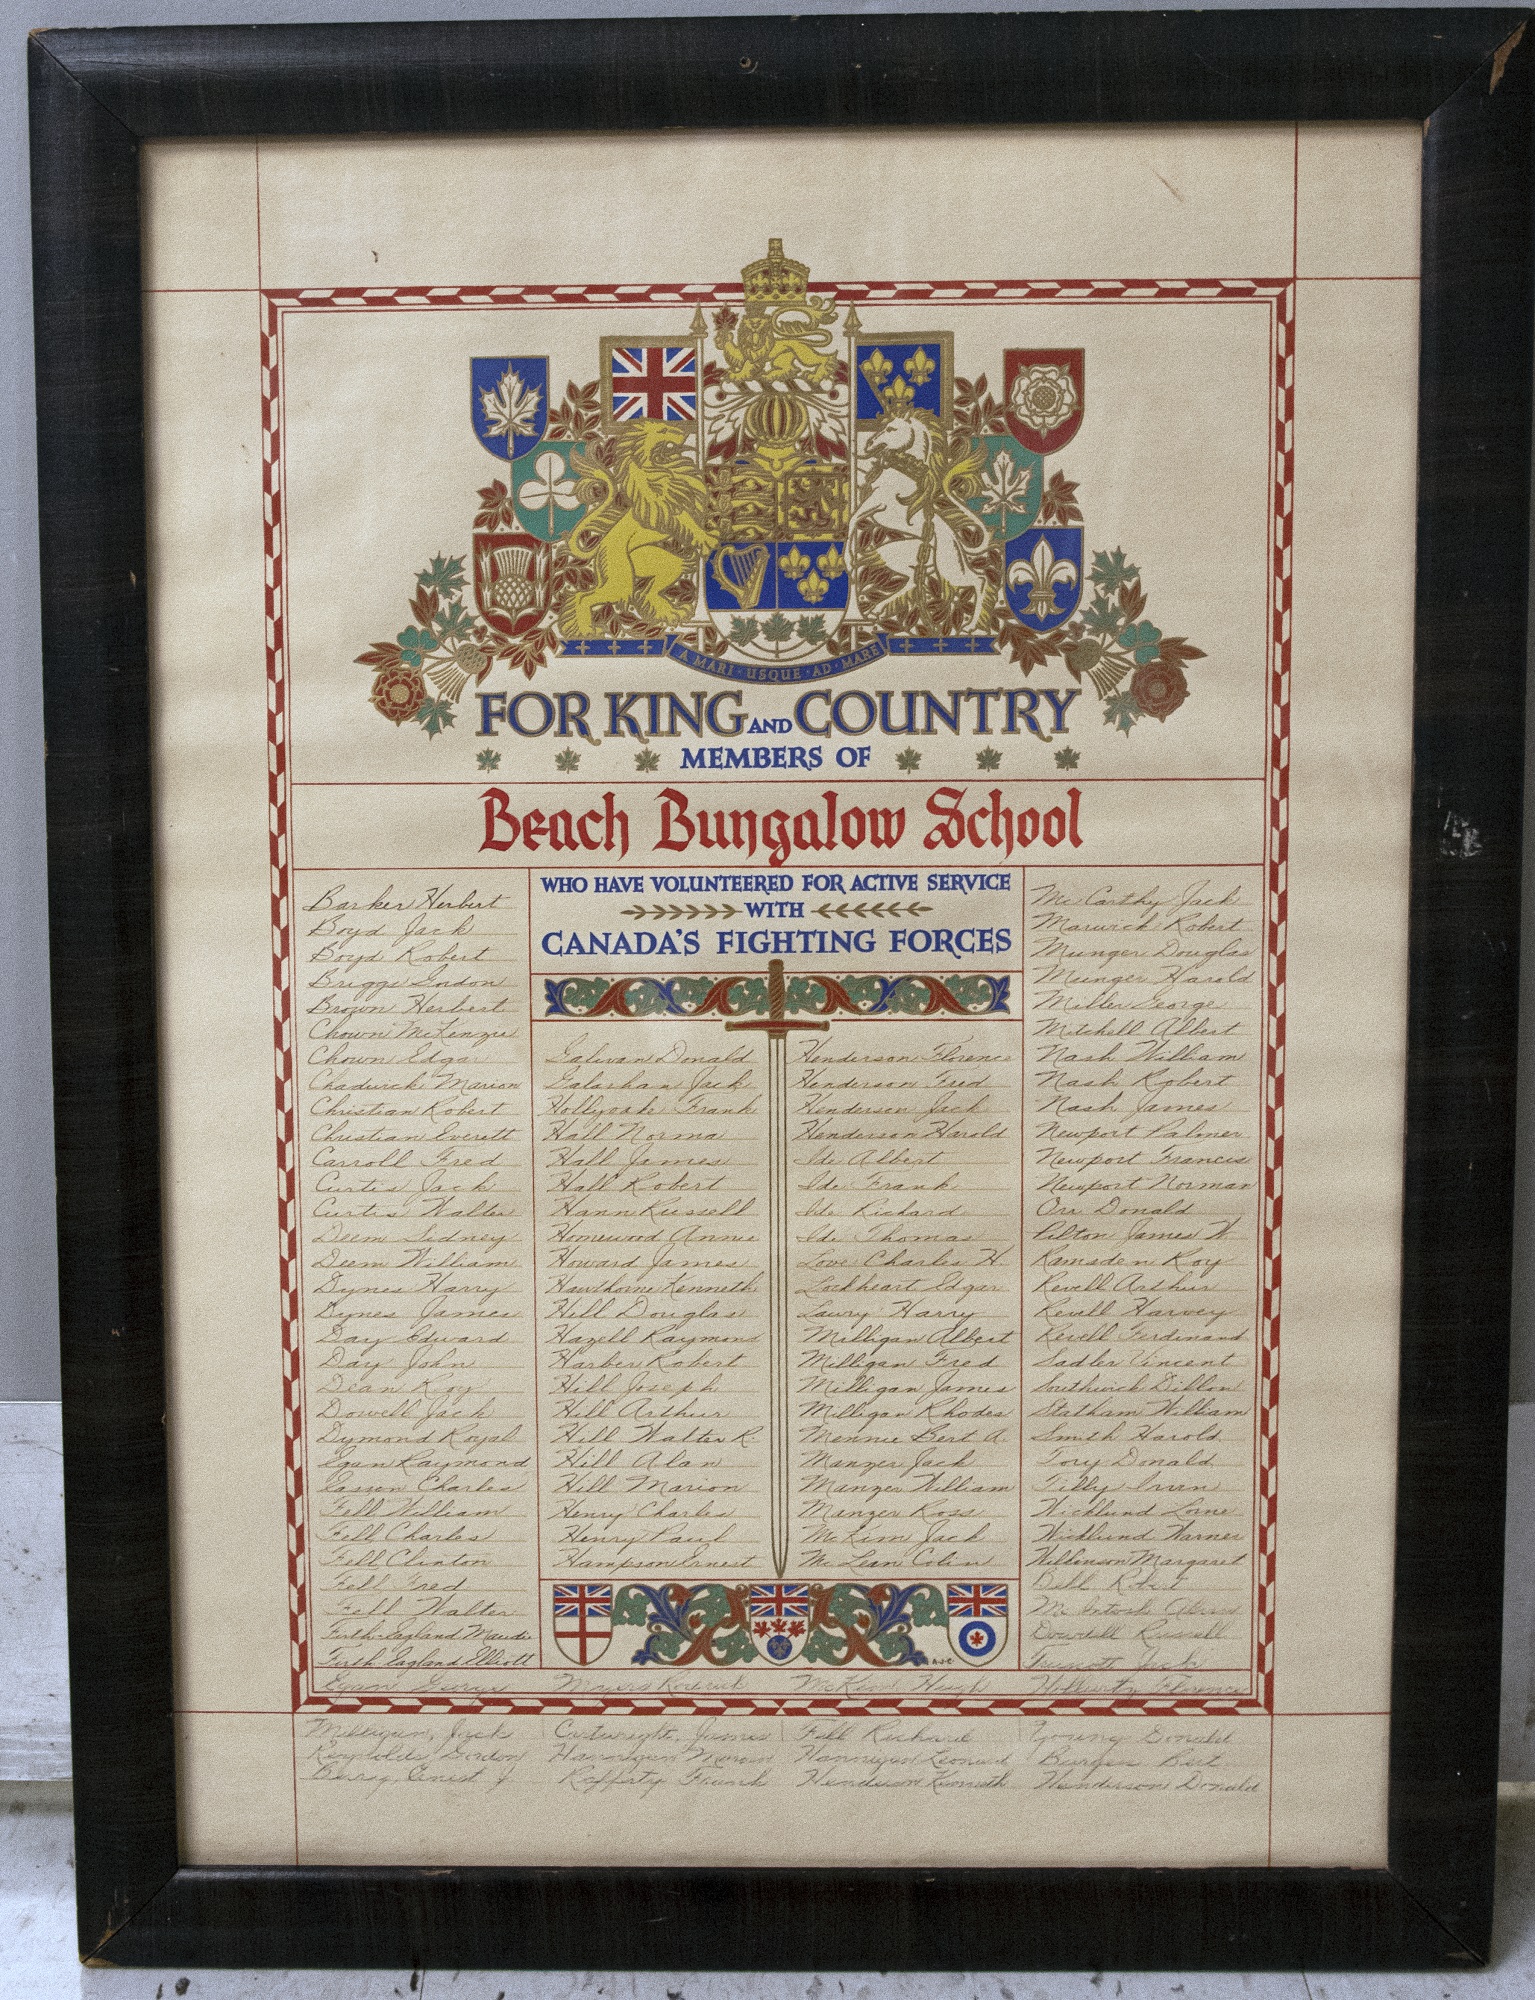 A MARI · USQUE · AD · MARE
FOR KING AND COUNTRY
MEMBERS OF
Beach Bungalow School
WHO HAVE VOLUNTEERED FOR ACTIVE SERVICE
WITH
CANADA'S FIGHTING FORCES
Barker Herbert
Boyd Jack
Boyd Robert
Briggs Gordon
Brown Herbert
Chown McKenzie
Chown Edgar
Chadwick Marion
Christian Robert
Christian Everett
Carroll Fred
Curtis Jack
Curtis Walter
Deem Sidney
Deem William
Dynes Harry
Dynes James
Day Edward
Day John
Dean Roy
Dowell Jack
Dymond Royal
Egan Raymond
Easson Charles
Fell William
Fell Charles
Fell Clinton
Fell Fred
Fell Walter
Firth-England Maude
Firth England Elliott
Egan George
Galivan Donald
Galashan Jack
Hollyoake Frank
Hall Norma
Hall James
Hall Robert
Hann Russell
Homewood Annie
Howard James
Hawthorne Kenneth
Hill Douglas
Hazell Raymond
Harber Robert
Hill Joseph
Hill Arthur
Hill Walter R.
Hill Alan
Hill Marion
Henry Charles
Henry Paul
Hampson Ernest
Henderson Florence
Henderson Fred
Henderson Jack
Henderson Harold
Ide Albert
Ide Frank
Ide Richard
Ide Thomas
Love Charles H.
Lockheart Edgar
Lawry Harry
Milligan Albert
Milligan Fred
Milligan James
Milligan Rhodes
Mennie Bert A.
Manzer Jack
Manzer William
Manzer Ross
McKim Jack
McLean Colin
McCarthy Jack
Marwick Robert
Munger Douglas
Munger Harold
Miller George
Mitchell Albert
Nash William
Nash Robert
Nash James
Newport Palmer
Newport Francis
Newport Norman
Orr Donald
Pilton James W.
Ramsden Roy
Revell Arthur
Revell Harvey
Revell Ferdinand
Sadler Vincent
Southwick Dillon
Statham William
Smith Harold
Tory Donald
Tilly Irvin
Wicklund Lorne
Wicklund Warner
Wilkinson Margaret
Bell Robert
McIntosh
Dowdell Russell
Jack
A.J.C.
Meyers Roderick
McKim Hugh
Florence
Milligan, Jack
Cartwright, James
Fell Richard
Young Donald
Reynolds, Gordon
Hannigan
Hannigan Leonard
Burgess Bert
Ernest J
Rafferty Frank
Henderson Kenneth
Henderson Donald